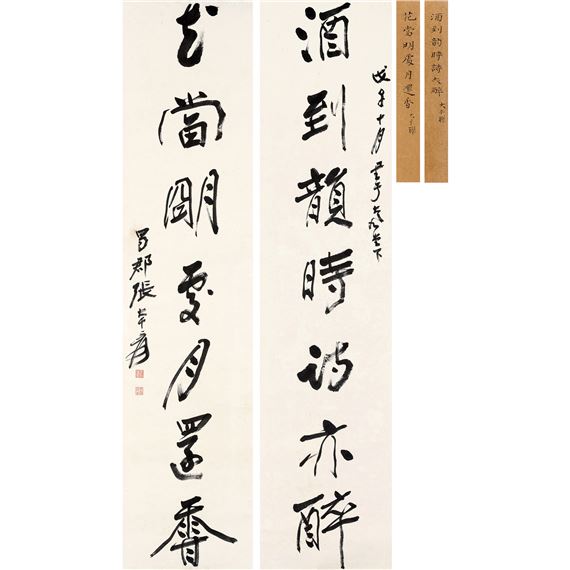 酒到韻時詩亦醉
戊午十月
花當朙處月還香
蜀郡張大千爰
酒到韵時詩亦醉 大千聯
花當明處月還香 大千聯